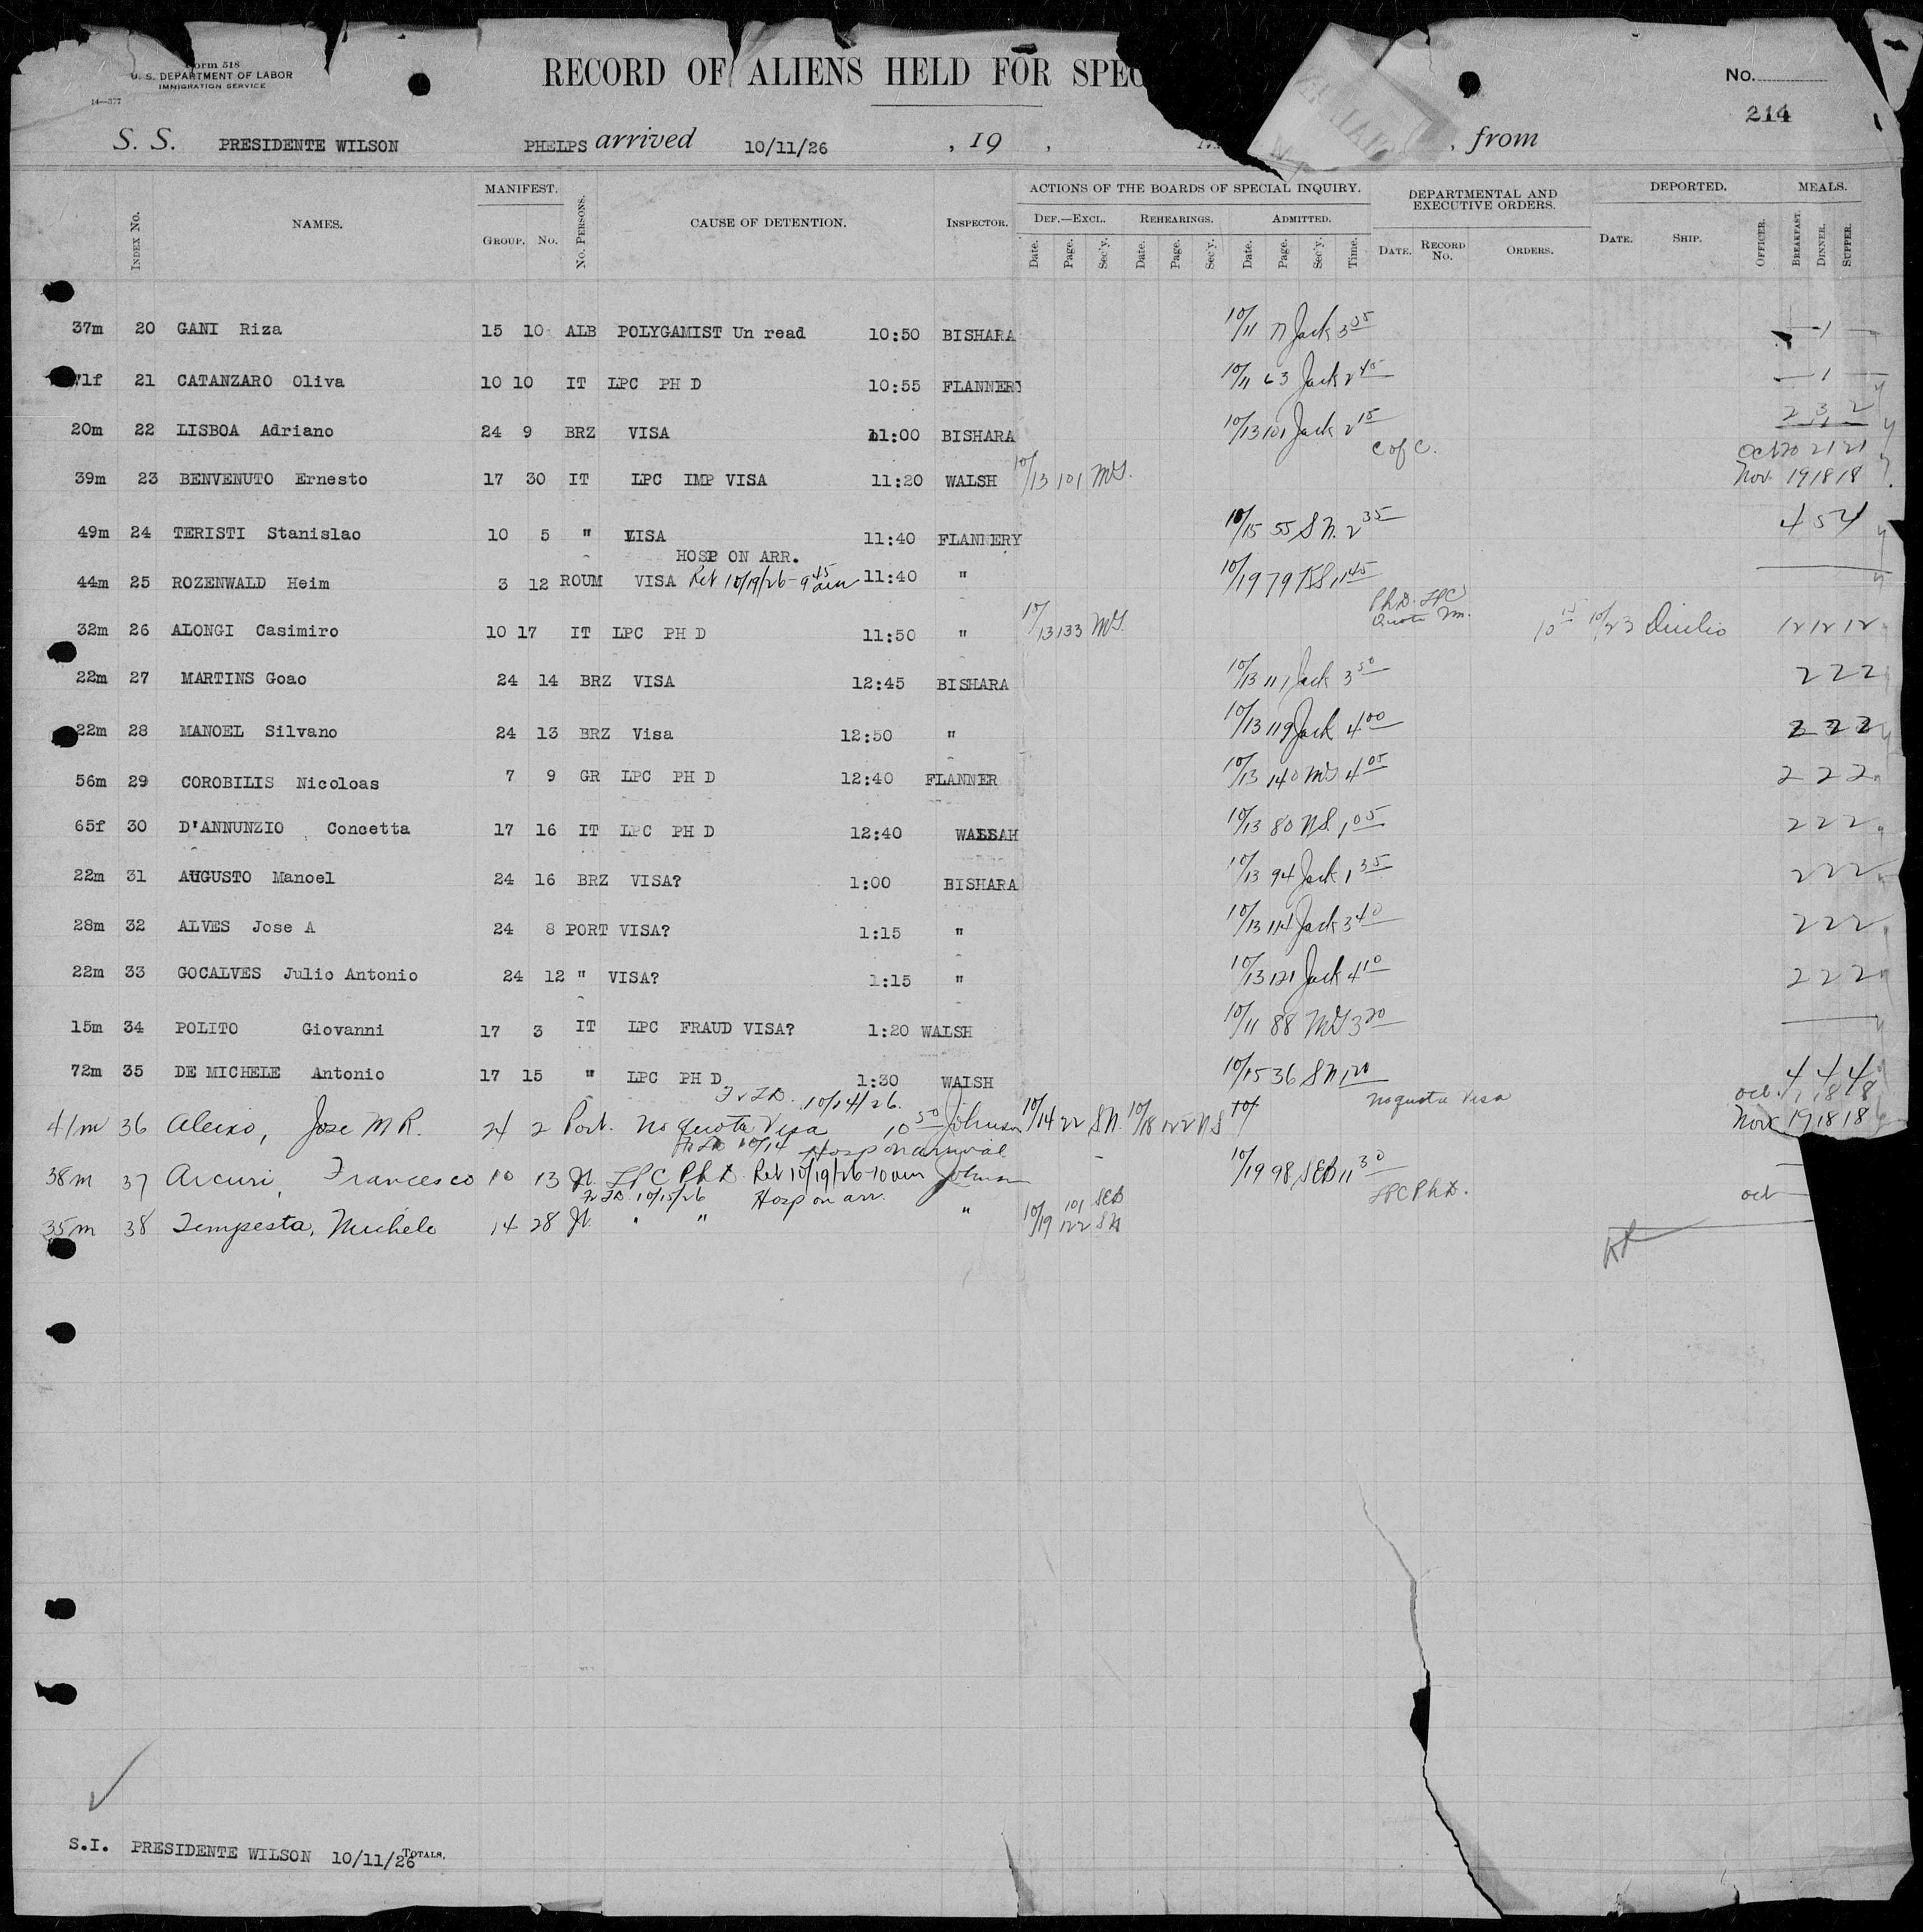 Form 518
U. S. DEPARTMENT OF LABOR
IMMIGRATION SERVICE
14—377
RECORD OF ALIENS HELD FOR SPEC
No.
214
S. S. PRESIDENTE WILSON PHELPS arrived 10/11/26 , 19 , , from
INDEX No. NAMES. MANIFEST. GROUP. No. No. PERSONS. CAUSE OF DETENTION. INSPECTOR. ACTIONS OF THE BOARDS OF SPECIAL INQUIRY. DEF.—EXCL. REHEARINGS. ADMITTED. DEPARTMENTAL AND EXECUTIVE ORDERS. DEPORTED. MEALS.
Date. Page. Sec'y. Date. Page. Sec'y. Date. Page. Sec'y. Time. DATE. RECORD No. ORDERS. DATE. SHIP. OFFICER. BREAKFAST. DINNER. SUPPER.
37m 20 GANI Riza 15 10 ALB POLYGAMIST Un read 10:50 BISHARA 10/11 Jack 3 05 — 1 —
71f 21 CATANZARO Oliva 10 10 IT LPC PH D 10:55 FLANNERY 10/11 63 Jack 2 45 — 1 —
2 3 2
20m 22 LISBOA Adriano 24 9 BRZ VISA 11:00 BISHARA 10/13 101 Jack 2 15
C of C. Oct 20 21 21
39m 23 BENVENUTO Ernesto 17 30 IT LPC IMP VISA 11:20 WALSH 10/13 101 Nov. 19 18 18
49m 24 TERISTI Stanislao 10 5 " VISA 11:40 FLANNERY 10/15 55 S N. 2 35 4 5 4
HOSP ON ARR.
44m 25 ROZENWALD Heim 3 12 ROUM VISA Ret 10/19/26 - 9 45 am 11:40 " 10/19 79 11 45
Ph.D. LPC
Quota Im.
32m 26 ALONGI Casimiro 10 17 IT LPC PH D 11:50 " 10/13 133 10 15 10/23 Duilio 12 12 12
22m 27 MARTINS Goao 24 14 BRZ VISA 12:45 BISHARA 10/13 111 Jack 3 50 2 2 2
22m 28 MANOEL Silvano 24 13 BRZ Visa 12:50 " 10/13 119 Jack 4 00 2 2 2
56m 29 COROBILIS Nicoloas 7 9 GR LPC PH D 12:40 FLANNER 10/13 140 4 05 2 2 2
65f 30 D'ANNUNZIO Concetta 17 16 IT LPC PH D 12:40 WALSAH 10/13 80 N S. 1 05 2 2 2
22m 31 AUGUSTO Manoel 24 16 BRZ VISA? 1:00 BISHARA 10/13 94 Jack 1 35 2 2 2
28m 32 ALVES Jose A 24 8 PORT VISA? 1:15 " 10/13 114 Jack 3 40 2 2 2
22m 33 GOCALVES Julio Antonio 24 12 " VISA? 1:15 " 10/13 121 Jack 4 10 2 2 2
15m 34 POLITO Giovanni 17 3 IT LPC FRAUD VISA? 1:20 WALSH 10/11 88 3 20 —
72m 35 DE MICHELE Antonio 17 15 " LPC PH D 1:30 WALSH 10/15 36 S N 1 20 4 4 4
10/14/26. No quota Visa Oct.
41m 36 Aleixo, Jose M R. 24 2 Port. No Quota Visa 10 50 Johnson 10/14 22 S N. 10/18 122 N S Nov. 19 18 18
10/14 Hosp on arrival
38m 37 Arcuri, Francesco 10 13 It. LPC Ph D. Ret 10/19/26 - 10 am Johnson 10/19 98 SEB 11 30
10/15/26 Hosp on arr. LPC Ph D. oct —
35m 38 Tempesta, Michele 14 28 It. " " " 10/19 101 SEB 122 S N
S.I. PRESIDENTE WILSON 10/11/26 TOTALS.